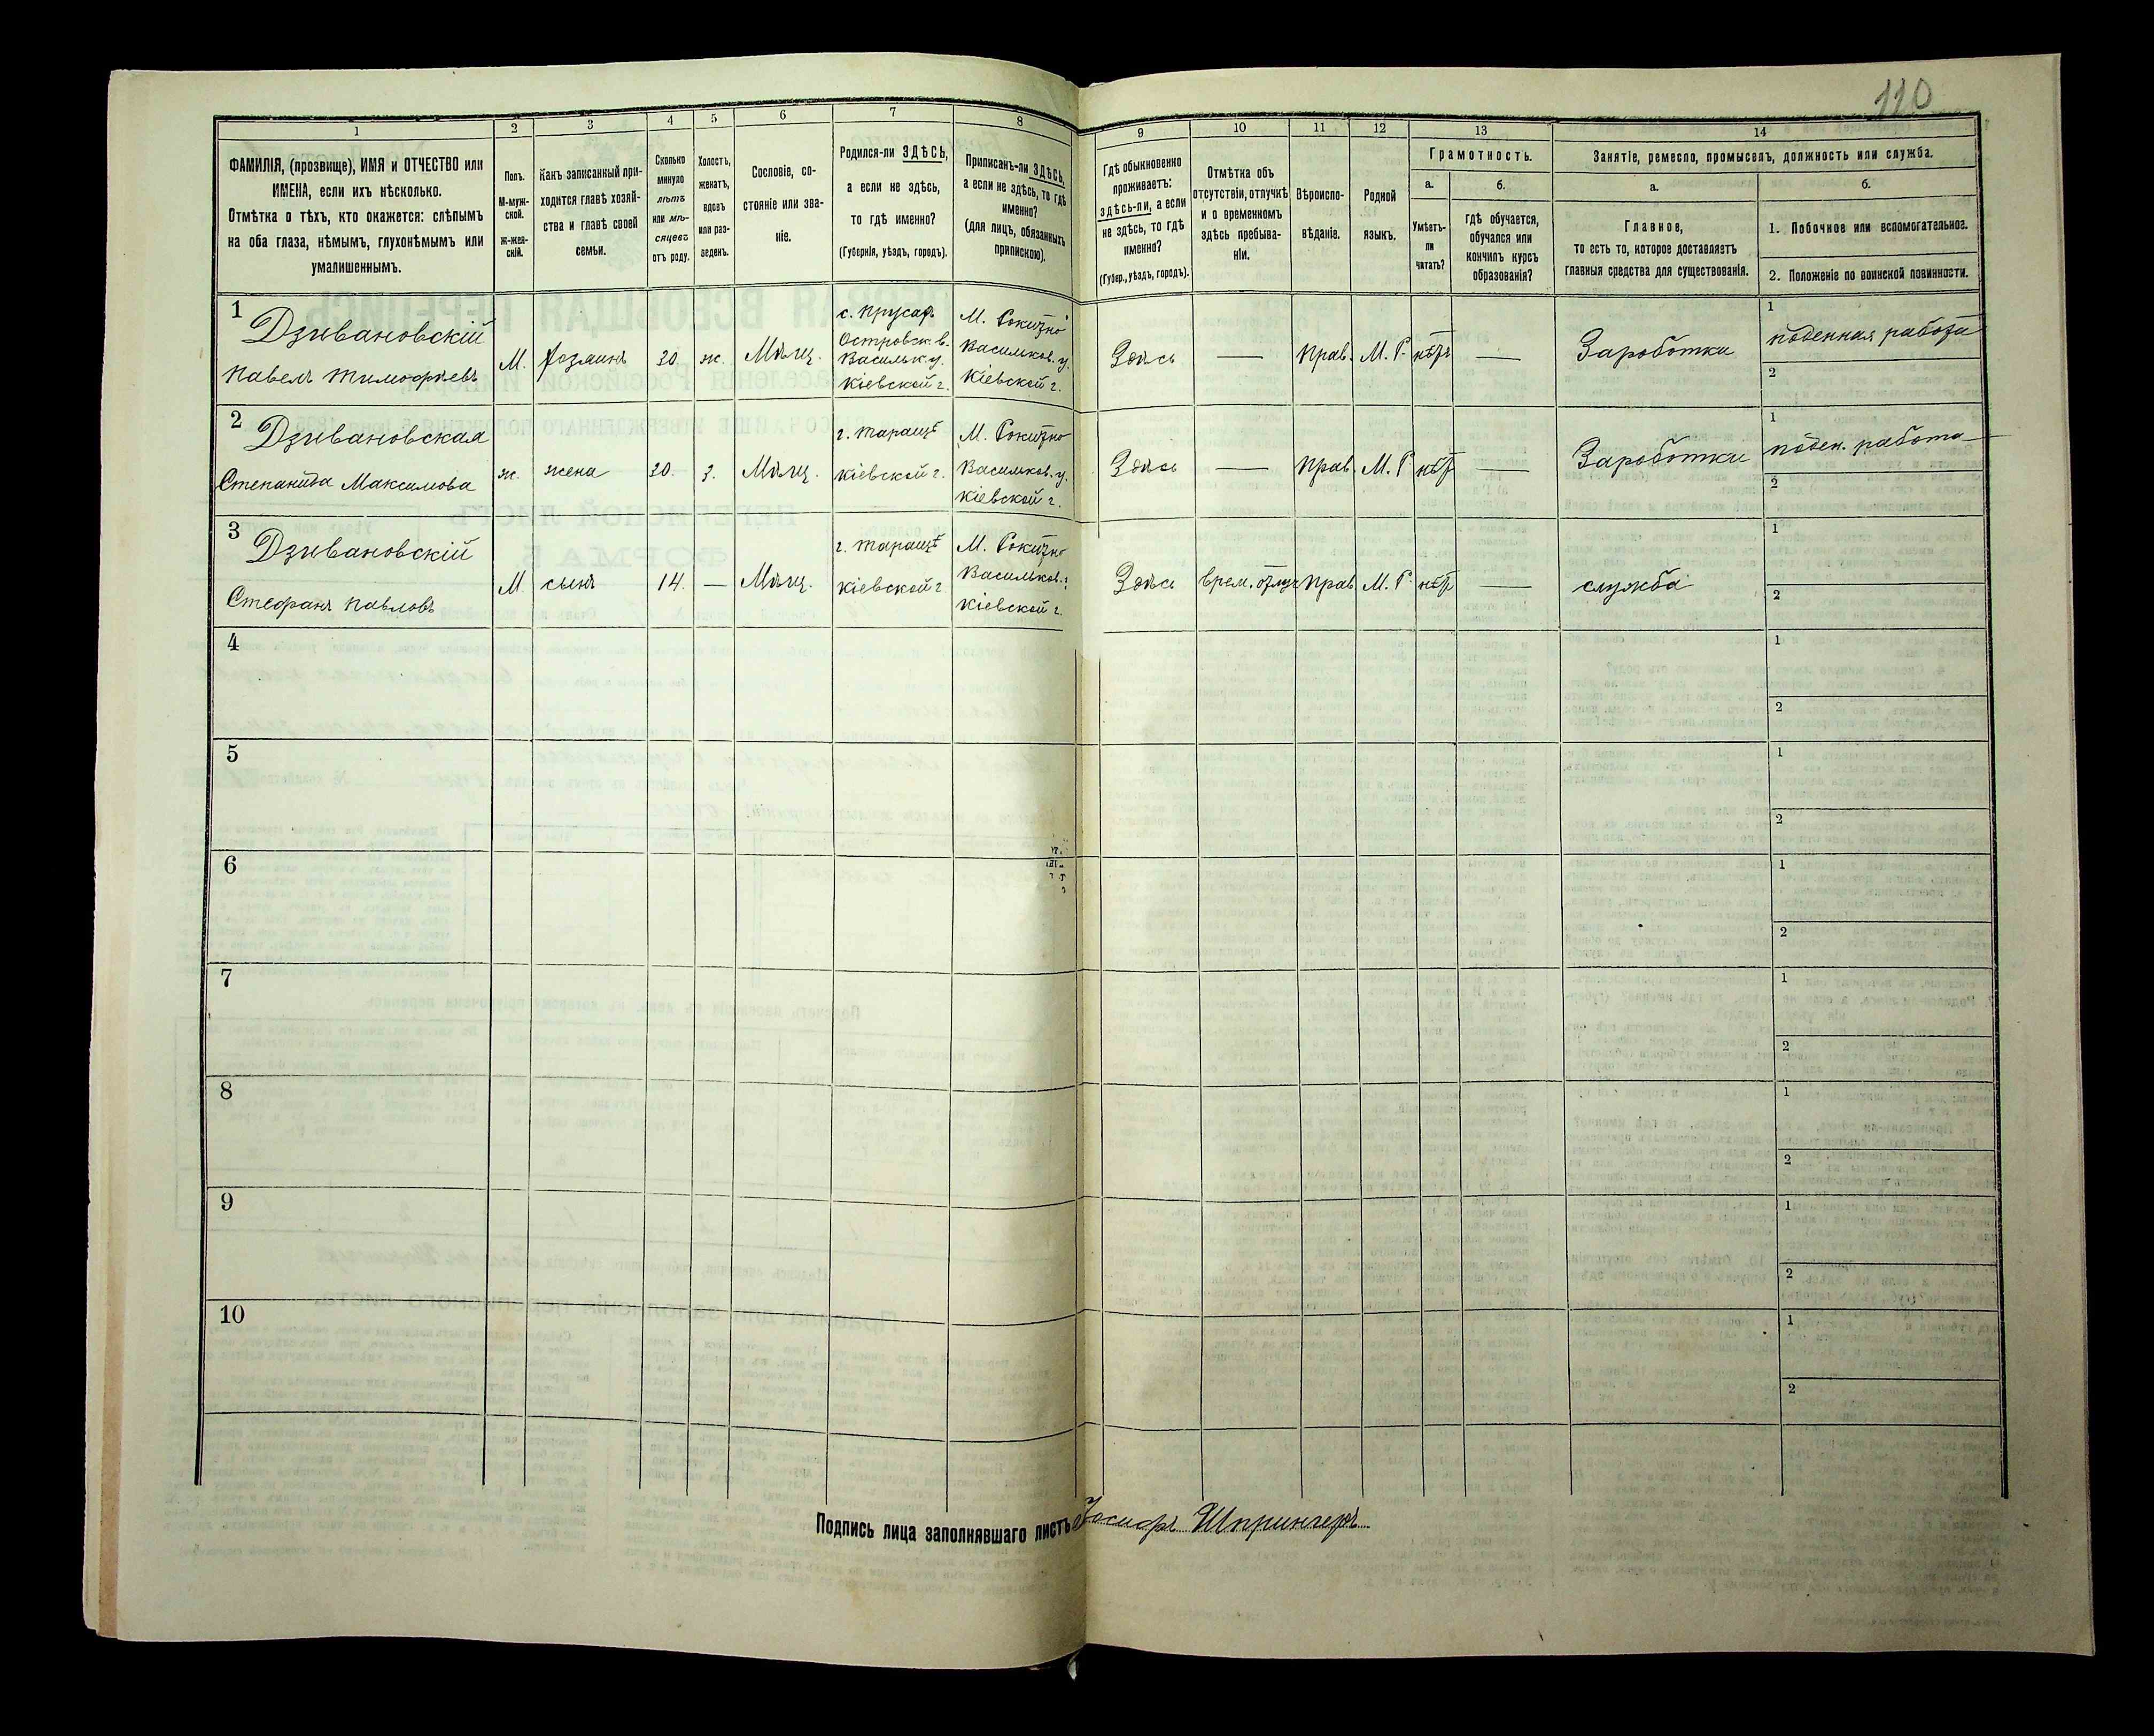 110
1
2
3
4
5
6
7
8
9
10
11
12
13
14
ФАМИЛІЯ, (прозвище), ИМЯ и ОТЧЕСТВО или
ИМЕНА, если ихъ нѣсколько.
Отмѣтка о тѣхъ, кто окажется: слѣпымъ
на оба глаза, нѣмымъ, глухонѣмымъ или
умалишеннымъ.
Полъ.
М-муж-
ской.
Ж-жен-
скій.
Какъ записанный при-
ходится главѣ хозяй-
ства и главѣ своей
семьи.
Сколько
минуло
лѣтъ
или мѣ-
сяцевъ
отъ роду.
Холостъ,
женатъ,
вдовъ
или раз-
веденъ.
Сословіе, со-
стояніе или зва-
ніе.
Родился-ли ЗДѢСЬ,
а если не здѣсь,
то гдѣ именно?
(Губернія, уѣздъ, городъ).
Приписанъ-ли ЗДѢСЬ,
а если не здѣсь, то гдѣ
именно?
(для лицъ, обязанныхъ
припискою).
Гдѣ обыкновенно
проживаетъ:
здѣсь-ли, а если
не здѣсь, то гдѣ
именно?
(Губер., уѣздъ, городъ).
Отмѣтка объ
отсутствіи, отлучкѣ
и о временномъ
здѣсь пребыва-
ніи.
Вѣроиспо-
вѣданіе.
Родной
языкъ.
Грамотность.
а.
б.
Умѣетъ-
ли
читать?
гдѣ обучается,
обучался или
кончилъ курсъ
образованія?
Занятіе, ремесло, промыселъ, должность или служба.
а.
б.
Главное,
то есть то, которое доставляетъ
главныя средства для существованія.
1. Побочное или вспомогательное.
2. Положеніе по воинской повинности.
1
Дзивановскій
Павелъ Тимофѣевъ
М.
Хозяинъ
30.
ж.
Мѣщ.
Островск. в.
Васильк. у.
Кіевской г.
М. Рокитно
Васильков. у.
Кіевской г.
Здѣсь
—
Прав.
М. Р.
нѣтъ
—
Зароботки
1
поденная работа
2
2
Дзивановская
Степанида Максимова
ж.
жена
30.
з.
Мѣщ.
г. Таращѣ
Кіевской г.
М. Рокитно
Васильков. у.
Кіевской г.
Здѣсь
—
Прав.
М. Р
нѣт
—
Зароботки
1
поден. работа
2
3
Дзивановскій
Стефанъ Павловъ
М.
сынъ
14.
—
Мѣщ.
г. Таращѣ
Кіевской г
М. Рокитно
Васильков.
Кіевской г.
Здѣсь
Врем. отлуч
Прав
М. Р.
нѣт
—
служба
1
2
4
1
2
5
1
2
6
1
2
7
1
2
8
1
2
9
1
2
10
1
2
Подпись лица заполнявшаго листъ Іосифъ Шпрингеръ